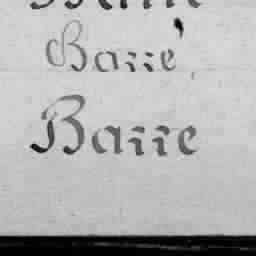 Barré
Barre